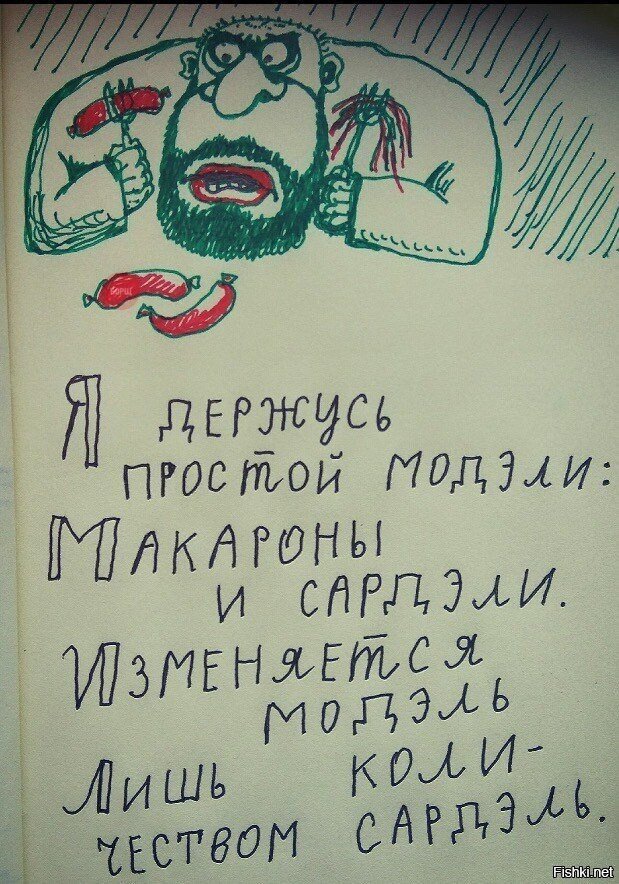 борщ
Я держусь
простой модэли:
Макароны
и сардэли.
Изменяется
модэль
Лишь коли-
чеством сардэль.
Fishki.net